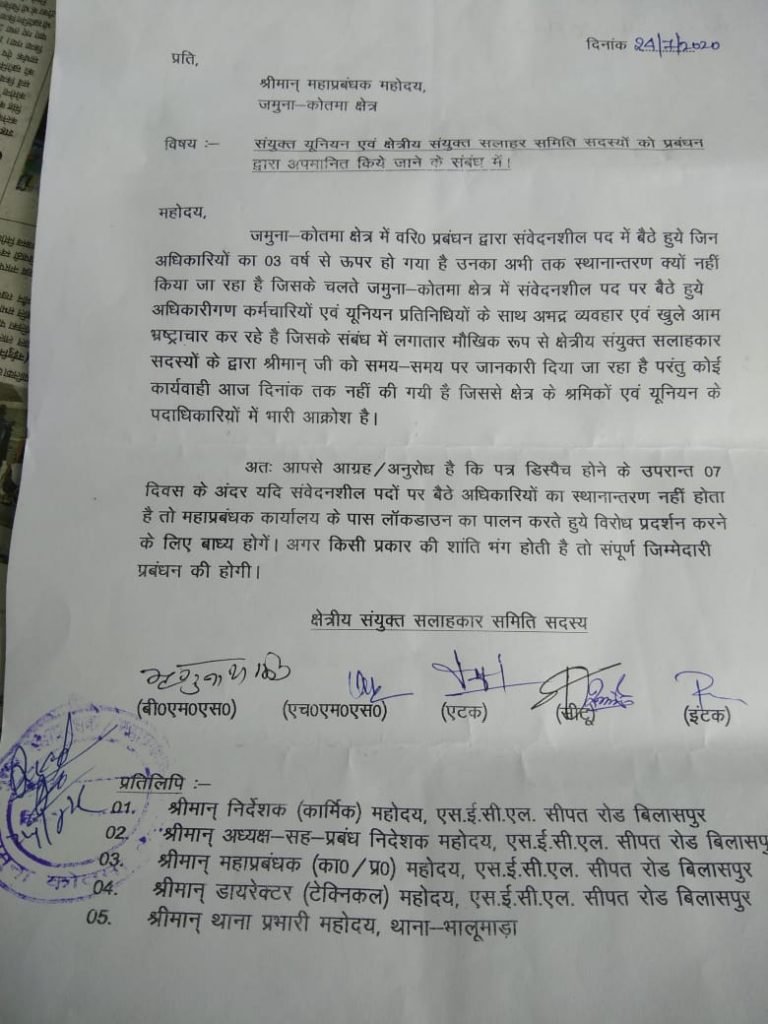 दिनांक 24/7/2020
प्रति,
श्रीमान् महाप्रबंधक महोदय,
जमुना–कोतमा क्षेत्र
विषय :– संयुक्त यूनियन एवं क्षेत्रीय संयुक्त सलाहर समिति सदस्यों को प्रबंधन
द्वारा अपमानित किये जाने के संबंध में।
महोदय,
जमुना–कोतमा क्षेत्र में वरि0 प्रबंधन द्वारा संवेदनशील पद में बैठे हुये जिन
अधिकारियों का 03 वर्ष से ऊपर हो गया है उनका अभी तक स्थानान्तरण क्यों नहीं
किया जा रहा है जिसके चलते जमुना–कोतमा क्षेत्र में संवेदनशील पद पर बैठे हुये
अधिकारीगण कर्मचारियों एवं यूनियन प्रतिनिधियों के साथ अभद्र व्यवहार एवं खुले आम
भ्रष्ट्राचार कर रहे है जिसके संबंध में लगातार मौखिक रूप से क्षेत्रीय संयुक्त सलाहकार
सदस्यों के द्वारा श्रीमान् जी को समय–समय पर जानकारी दिया जा रहा है परंतु कोई
कार्यवाही आज दिनांक तक नहीं की गयी है जिससे क्षेत्र के श्रमिकों एवं यूनियन के
पदाधिकारियों में भारी आक्रोश है।
अतः आपसे आग्रह/अनुरोध है कि पत्र डिस्पैच होने के उपरान्त 07
दिवस के अंदर यदि संवेदनशील पदों पर बैठे अधिकारियों का स्थानान्तरण नहीं होता
है तो महाप्रबंधक कार्यालय के पास लॉकडाउन का पालन करते हुये विरोध प्रदर्शन करने
के लिए बाध्य होगें। अगर किसी प्रकार की शांति भंग होती है तो संपूर्ण जिम्मेदारी
प्रबंधन की होगी।
क्षेत्रीय संयुक्त सलाहकार समिति सदस्य
(बी0एम0एस0) (एच0एम0एस0) (एटक) (सीटू) (इंटक)
प्रतिलिपि :–
01. श्रीमान् निर्देशक (कार्मिक) महोदय, एस.ई.सी.एल. सीपत रोड बिलासपुर
02. श्रीमान् अध्यक्ष–सह–प्रबंध निदेशक महोदय, एस.ई.सी.एल. सीपत रोड बिलासपु
03. श्रीमान् महाप्रबंधक (का0/प्र0) महोदय, एस.ई.सी.एल. सीपत रोड बिलासपुर
04. श्रीमान् डायरेक्टर (टेक्निकल) महोदय, एस.ई.सी.एल. सीपत रोड बिलासपुर
05. श्रीमान् थाना प्रभारी महोदय, थाना–भालूमाड़ा